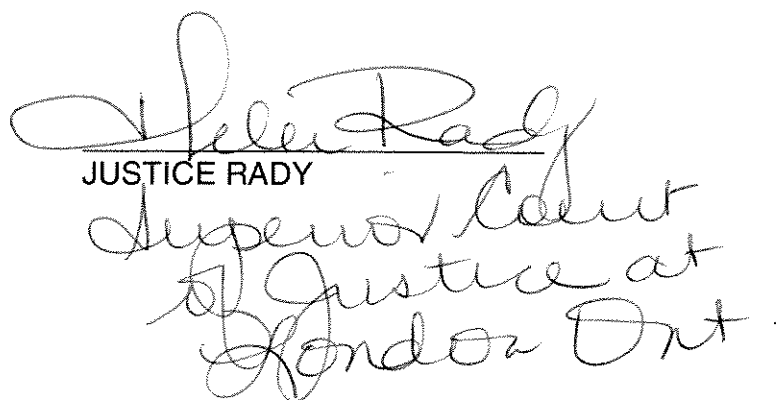 Helen Rady
JUSTICE RADY
Superior Court
of Justice at
London Ont.